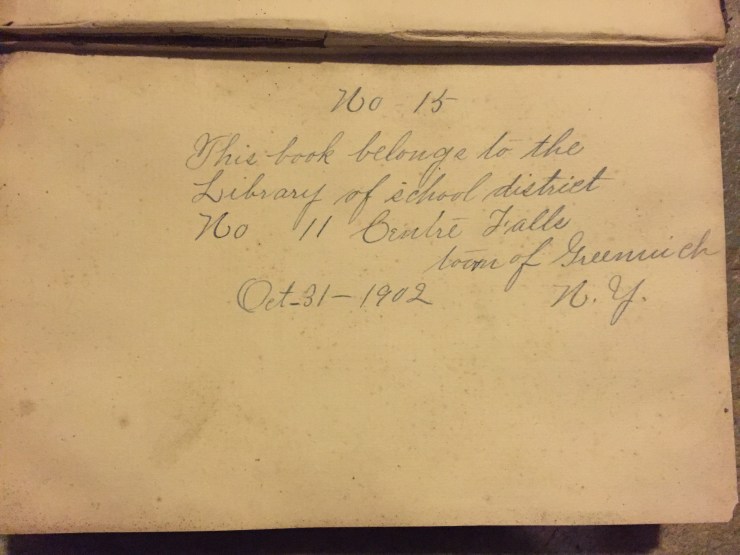 No 15
This book belongs to the
Library of school district
No 11 Centre Falls
town of Greenwich
Oct-31-1902 N.Y.